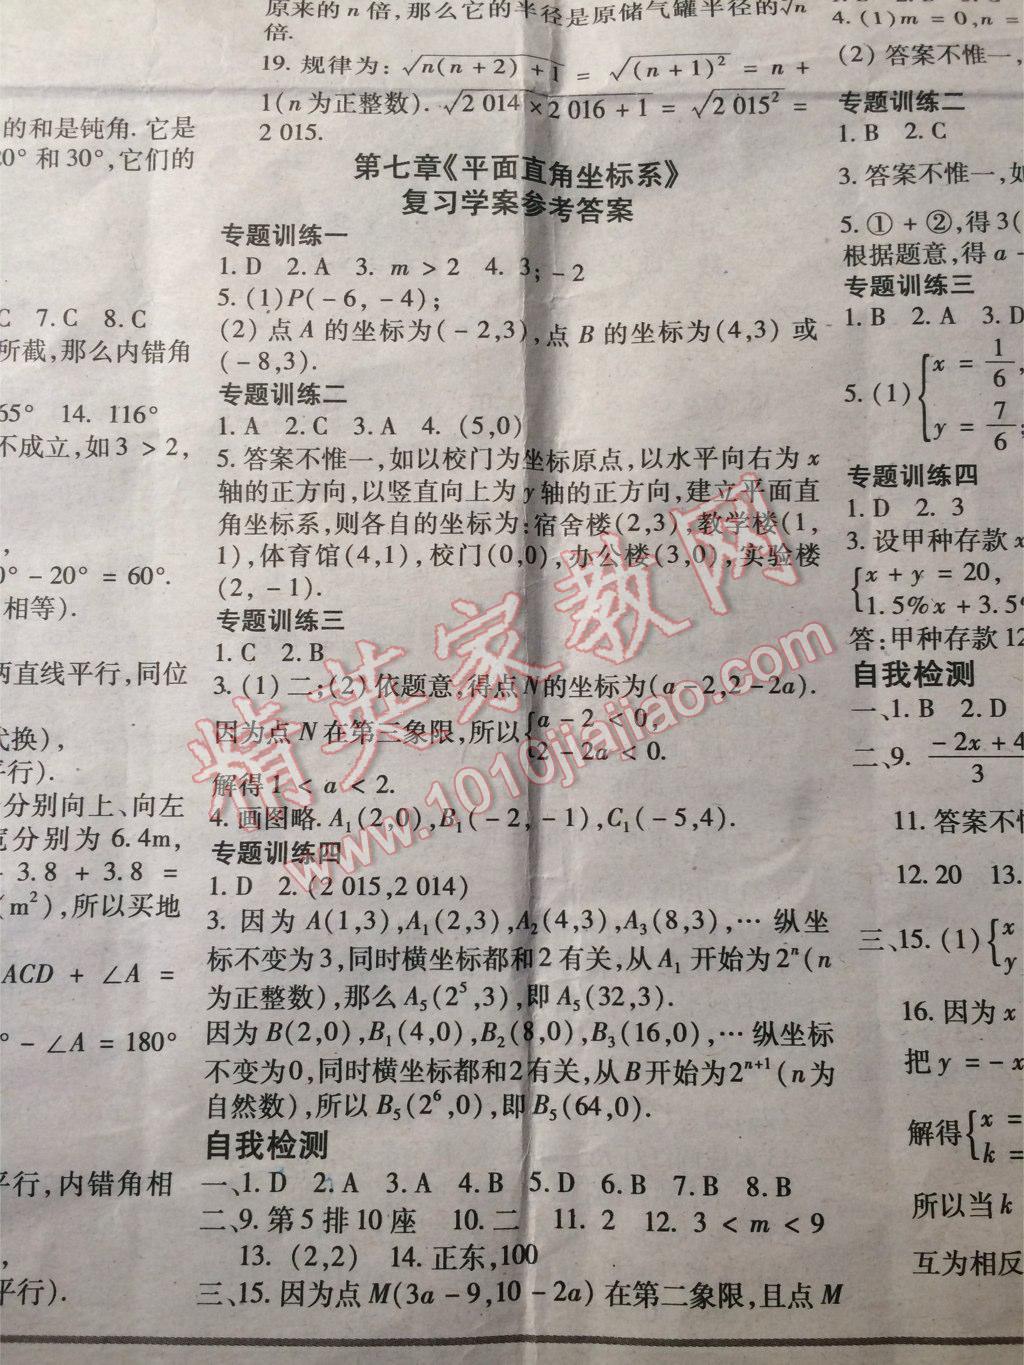 的和是钝角. 它是
0° 和 30°, 它们的
C 7. C 8. C
所截, 那么内错角
65° 14. 116°
不成立, 如 3 > 2,
0° - 20° = 60°.
相等).
两直线平行, 同位
代换),
平行).
分别向上、向左
宽分别为 6.4m,
3.8 + 3.8 =
(m²), 所以买地
ACD + ∠A =
° - ∠A = 180°
平行, 内错角相
平行).
原来的 n 倍, 那么它的半径是原储气罐半径的 √n
倍.
19. 规律为: √(n(n + 2) + 1) = √((n + 1)²) = n +
1(n 为正整数). √(2 014 × 2 016 + 1) = √(2 015²) =
2 015.
第七章《平面直角坐标系》
复习学案参考答案
专题训练一
1. D 2. A 3. m > 2 4. 3; -2
5. (1)P( -6, -4);
(2) 点 A 的坐标为( -2,3), 点 B 的坐标为(4,3) 或
( -8,3).
专题训练二
1. A 2. C 3. A 4. (5,0)
5. 答案不惟一, 如以校门为坐标原点, 以水平向右为 x
轴的正方向, 以竖直向上为 y 轴的正方向, 建立平面直
角坐标系, 则各自的坐标为: 宿舍楼(2,3), 教学楼(1,
1), 体育馆(4,1), 校门(0,0), 办公楼(3,0), 实验楼
(2, -1).
专题训练三
1. C 2. B
3. (1) 二; (2) 依题意, 得点 N 的坐标为(a - 2,2 - 2a).
因为点 N 在第三象限, 所以 { a - 2 < 0,
2 - 2a < 0.
解得 1 < a < 2.
4. 画图略. A₁(2,0), B₁( -2, -1), C₁( -5,4).
专题训练四
1. D 2. (2 015,2 014)
3. 因为 A(1,3), A₁(2,3), A₂(4,3), A₃(8,3), … 纵坐
标不变为 3, 同时横坐标都和 2 有关, 从 A₁ 开始为 2ⁿ(n
为正整数), 那么 A₅(2⁵,3), 即 A₅(32,3).
因为 B(2,0), B₁(4,0), B₂(8,0), B₃(16,0), … 纵坐标
不变为0, 同时横坐标都和2有关, 从B开始为2ⁿ⁺¹(n为
自然数), 所以 B₅(2⁶,0), 即 B₅(64,0).
自我检测
一、1. D 2. A 3. A 4. B 5. D 6. B 7. B 8. B
二、9. 第 5 排 10 座 10. 二 11. 2 12. 3 < m < 9
13. (2,2) 14. 正东, 100
三、15. 因为点 M(3a - 9,10 - 2a) 在第二象限, 且点 M
4. (1)m = 0,n =
(2) 答案不惟一,
专题训练二
1. B 2. C
3. 答案不惟一, 如
5. ① + ②, 得 3(
根据题意, 得 a -
专题训练三
1. B 2. A 3. D
5. (1) { x = 1/6,
y = 7/6;
专题训练四
1. D 2. 3
3. 设甲种存款 x
{ x + y = 20,
1.5% x + 3.5%
答: 甲种存款 12
自我检测
一、1. B 2. D
二、9. (-2x + 4)/3
11. 答案不惟
12. 20 13.
三、15. (1) { x
y
16. 因为 x
把 y = - x
解得 { x =
k =
所以当 k
互为相反
精英家教网
www.1010jiajiao.com